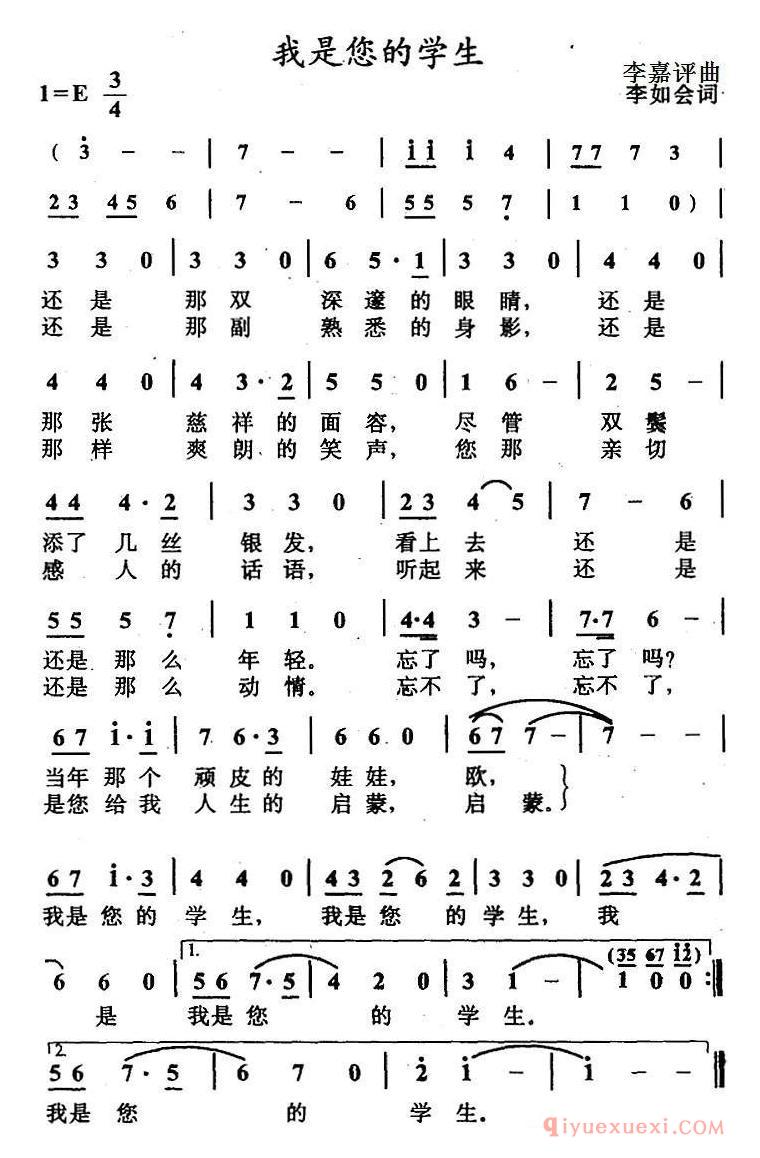 我是您的学生
1=E 3/4
李嘉评曲
李如会词
( 3̇ - - | 7 - - | 1̇ 1̇ 1̇ 4 | 7 7 7 3 |
2 3 4 5 6 | 7 - 6 | 5 5 5 7̣ | 1 1 0 ) |
3 3 0 | 3 3 0 | 6 5 · 1 | 3 3 0 | 4 4 0 |
还是 那双 深邃的眼睛, 还是
还是 那副 熟悉的身影, 还是
4 4 0 | 4 3 · 2 | 5 5 0 | 1 6 - | 2 5 - |
那张 慈祥的面容, 尽管 双鬓
那样 爽朗的笑声, 您那 亲切
4 4 4 · 2 | 3 3 0 | 2 3 4 5 | 7 - 6 |
添了几丝 银发, 看上去 还是
感人的 话语, 听起来 还是
5 5 5 7̣ | 1 1 0 | 4 · 4 3 - | 7 · 7 6 - |
还是那么 年轻。 忘了吗, 忘了吗?
还是那么 动情。 忘不了, 忘不了,
6 7 1̇ · 1̇ | 7 6 · 3 | 6 6 0 | 6 7 7 - | 7 - - |
当年那个 顽皮的 娃娃, 欧,
是您给我 人生的 启蒙, 启蒙。
6 7 1̇ · 3 | 4 4 0 | 4 3 2 6 2 | 3 3 0 | 2 3 4 · 2 |
我是您的 学生, 我是您 的学生, 我
6 6 0 | 1. 5 6 7 · 5 | 4 2 0 | 3 1 - | (35 67 1̇2̇) 1 0 0 :‖
是 我是您 的 学生。
2. 5 6 7 · 5 | 6 7 0 | 2̇ 1̇ - | 1̇ - - ‖
我是您 的 学生。
qiyuexuexi.com